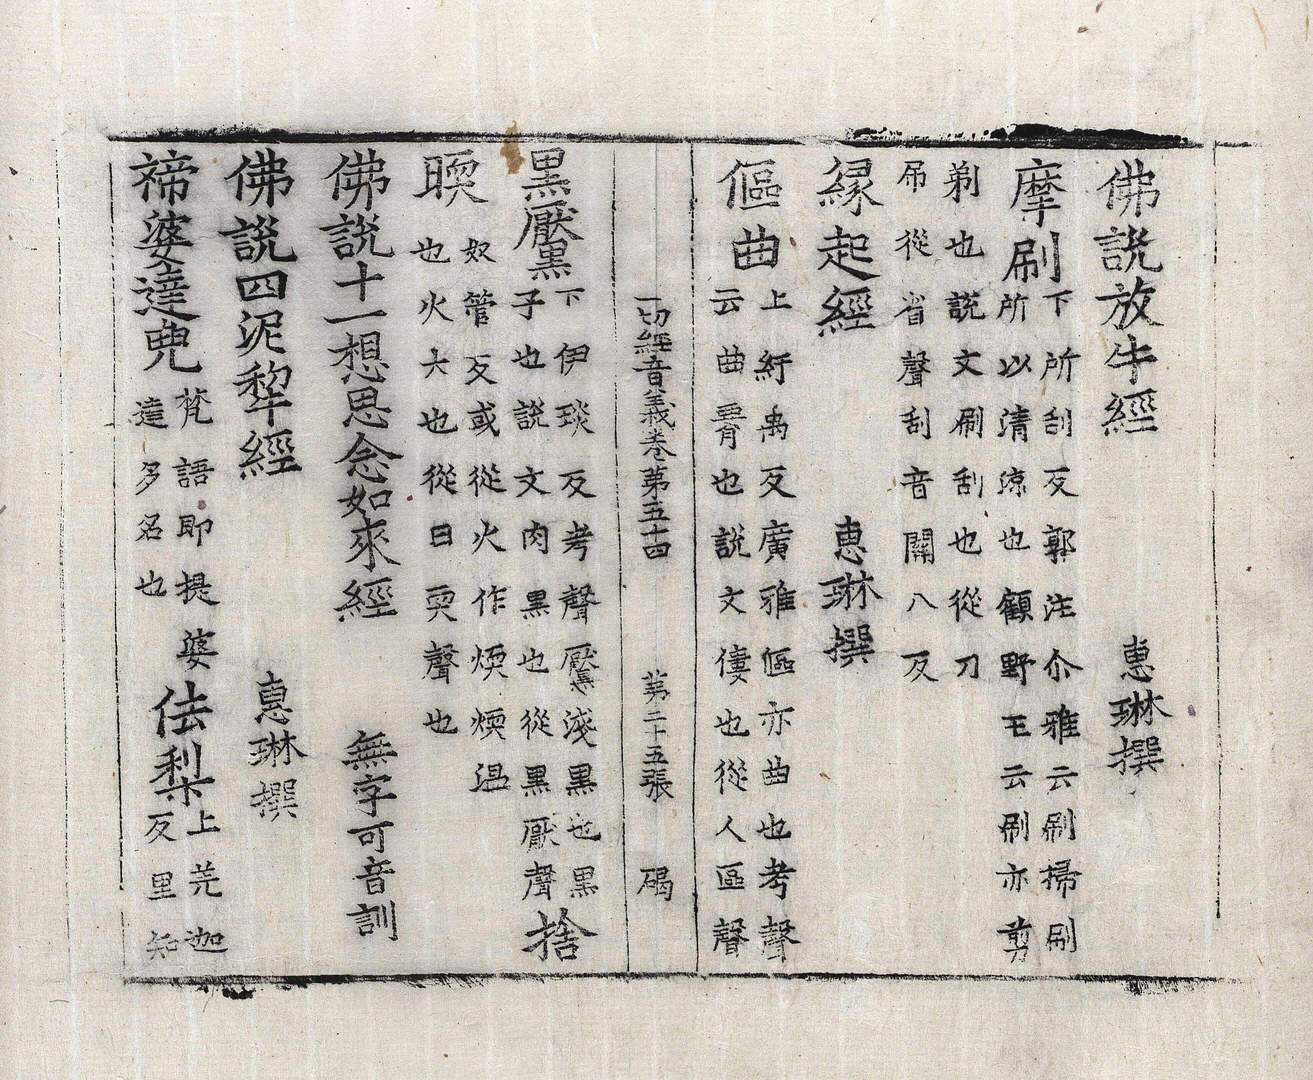 佛說放牛經 惠琳撰
摩刷
下所刮反郭注尒雅云刷掃刷
所以清涼也顧野王云刷亦剪
剃也說文刷刮也從刀
㕞從省聲刮音關八反
緣起經 惠琳撰
傴曲
上紆禹反廣雅傴亦曲也考聲
云曲脊也說文僂也從人區聲
一切經音義卷第五十四 第二十五張 碣
黑黶
下伊琰反考聲黶淺黑也黑
子也說文肉黑也從黑厭聲
捨
㬉
奴管反或從火作煗煗溫
也火大也從日耎聲也
佛說十一想思念如來經 無字可音訓
佛說四泥犁經 惠琳撰
褅婆達兜
梵語即提婆
達多名也
佉梨
上羌迦
反里知